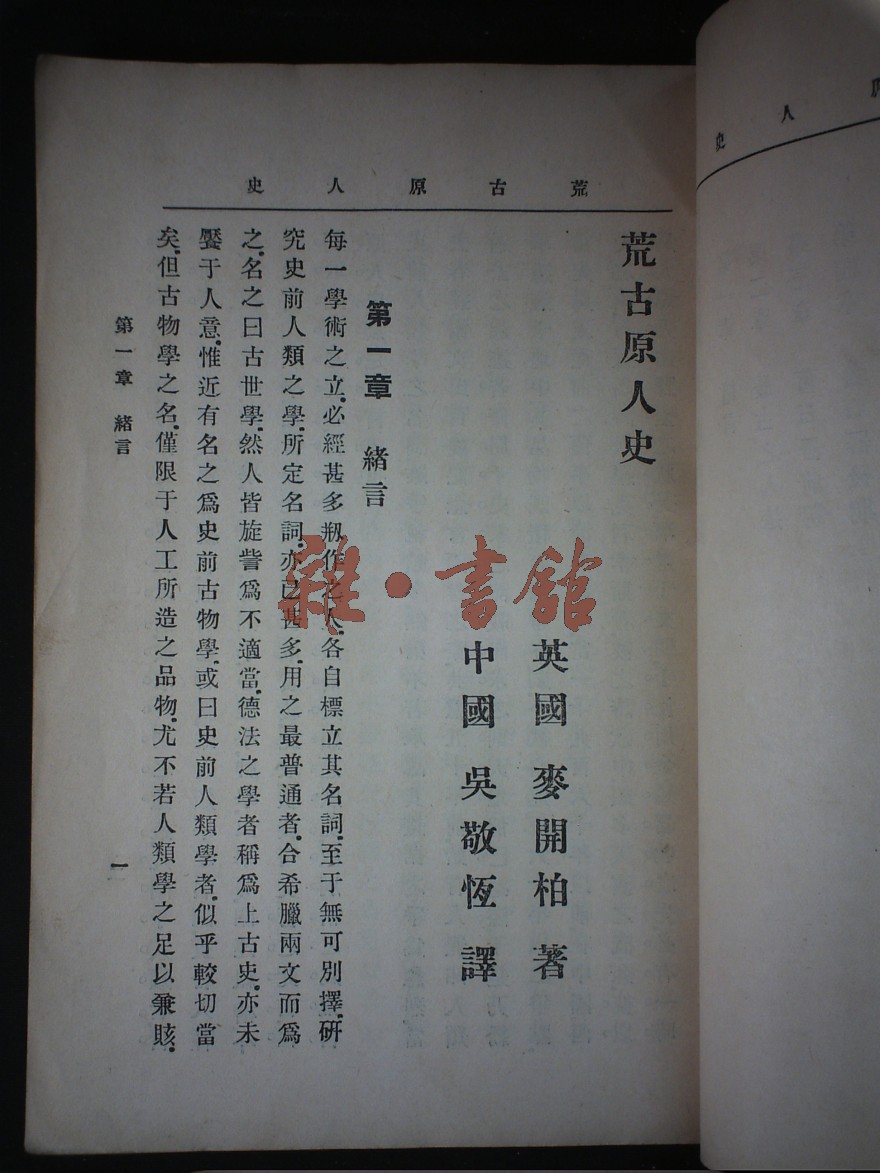 荒古原人史
荒古原人史
英國 麥開柏 著
中國 吳敬恆 譯
第一章 緒言
每一學術之立。必經甚多剏作之人。各自標立其名詞。至于無可別擇。硏
究史前人類之學。所定名詞。亦已甚多。用之最普通者。合希臘兩文而爲
之。名之曰古世學。然人皆旋訾爲不適當。德法之學者稱爲上古史。亦未
饜于人意。惟近有名之爲史前古物學。或曰史前人類學者。似乎較切當
矣。但古物學之名。僅限于人工所造之品物。尤不若人類學之足以兼賅。
第一章 緒言
一
雜·書館
人
史